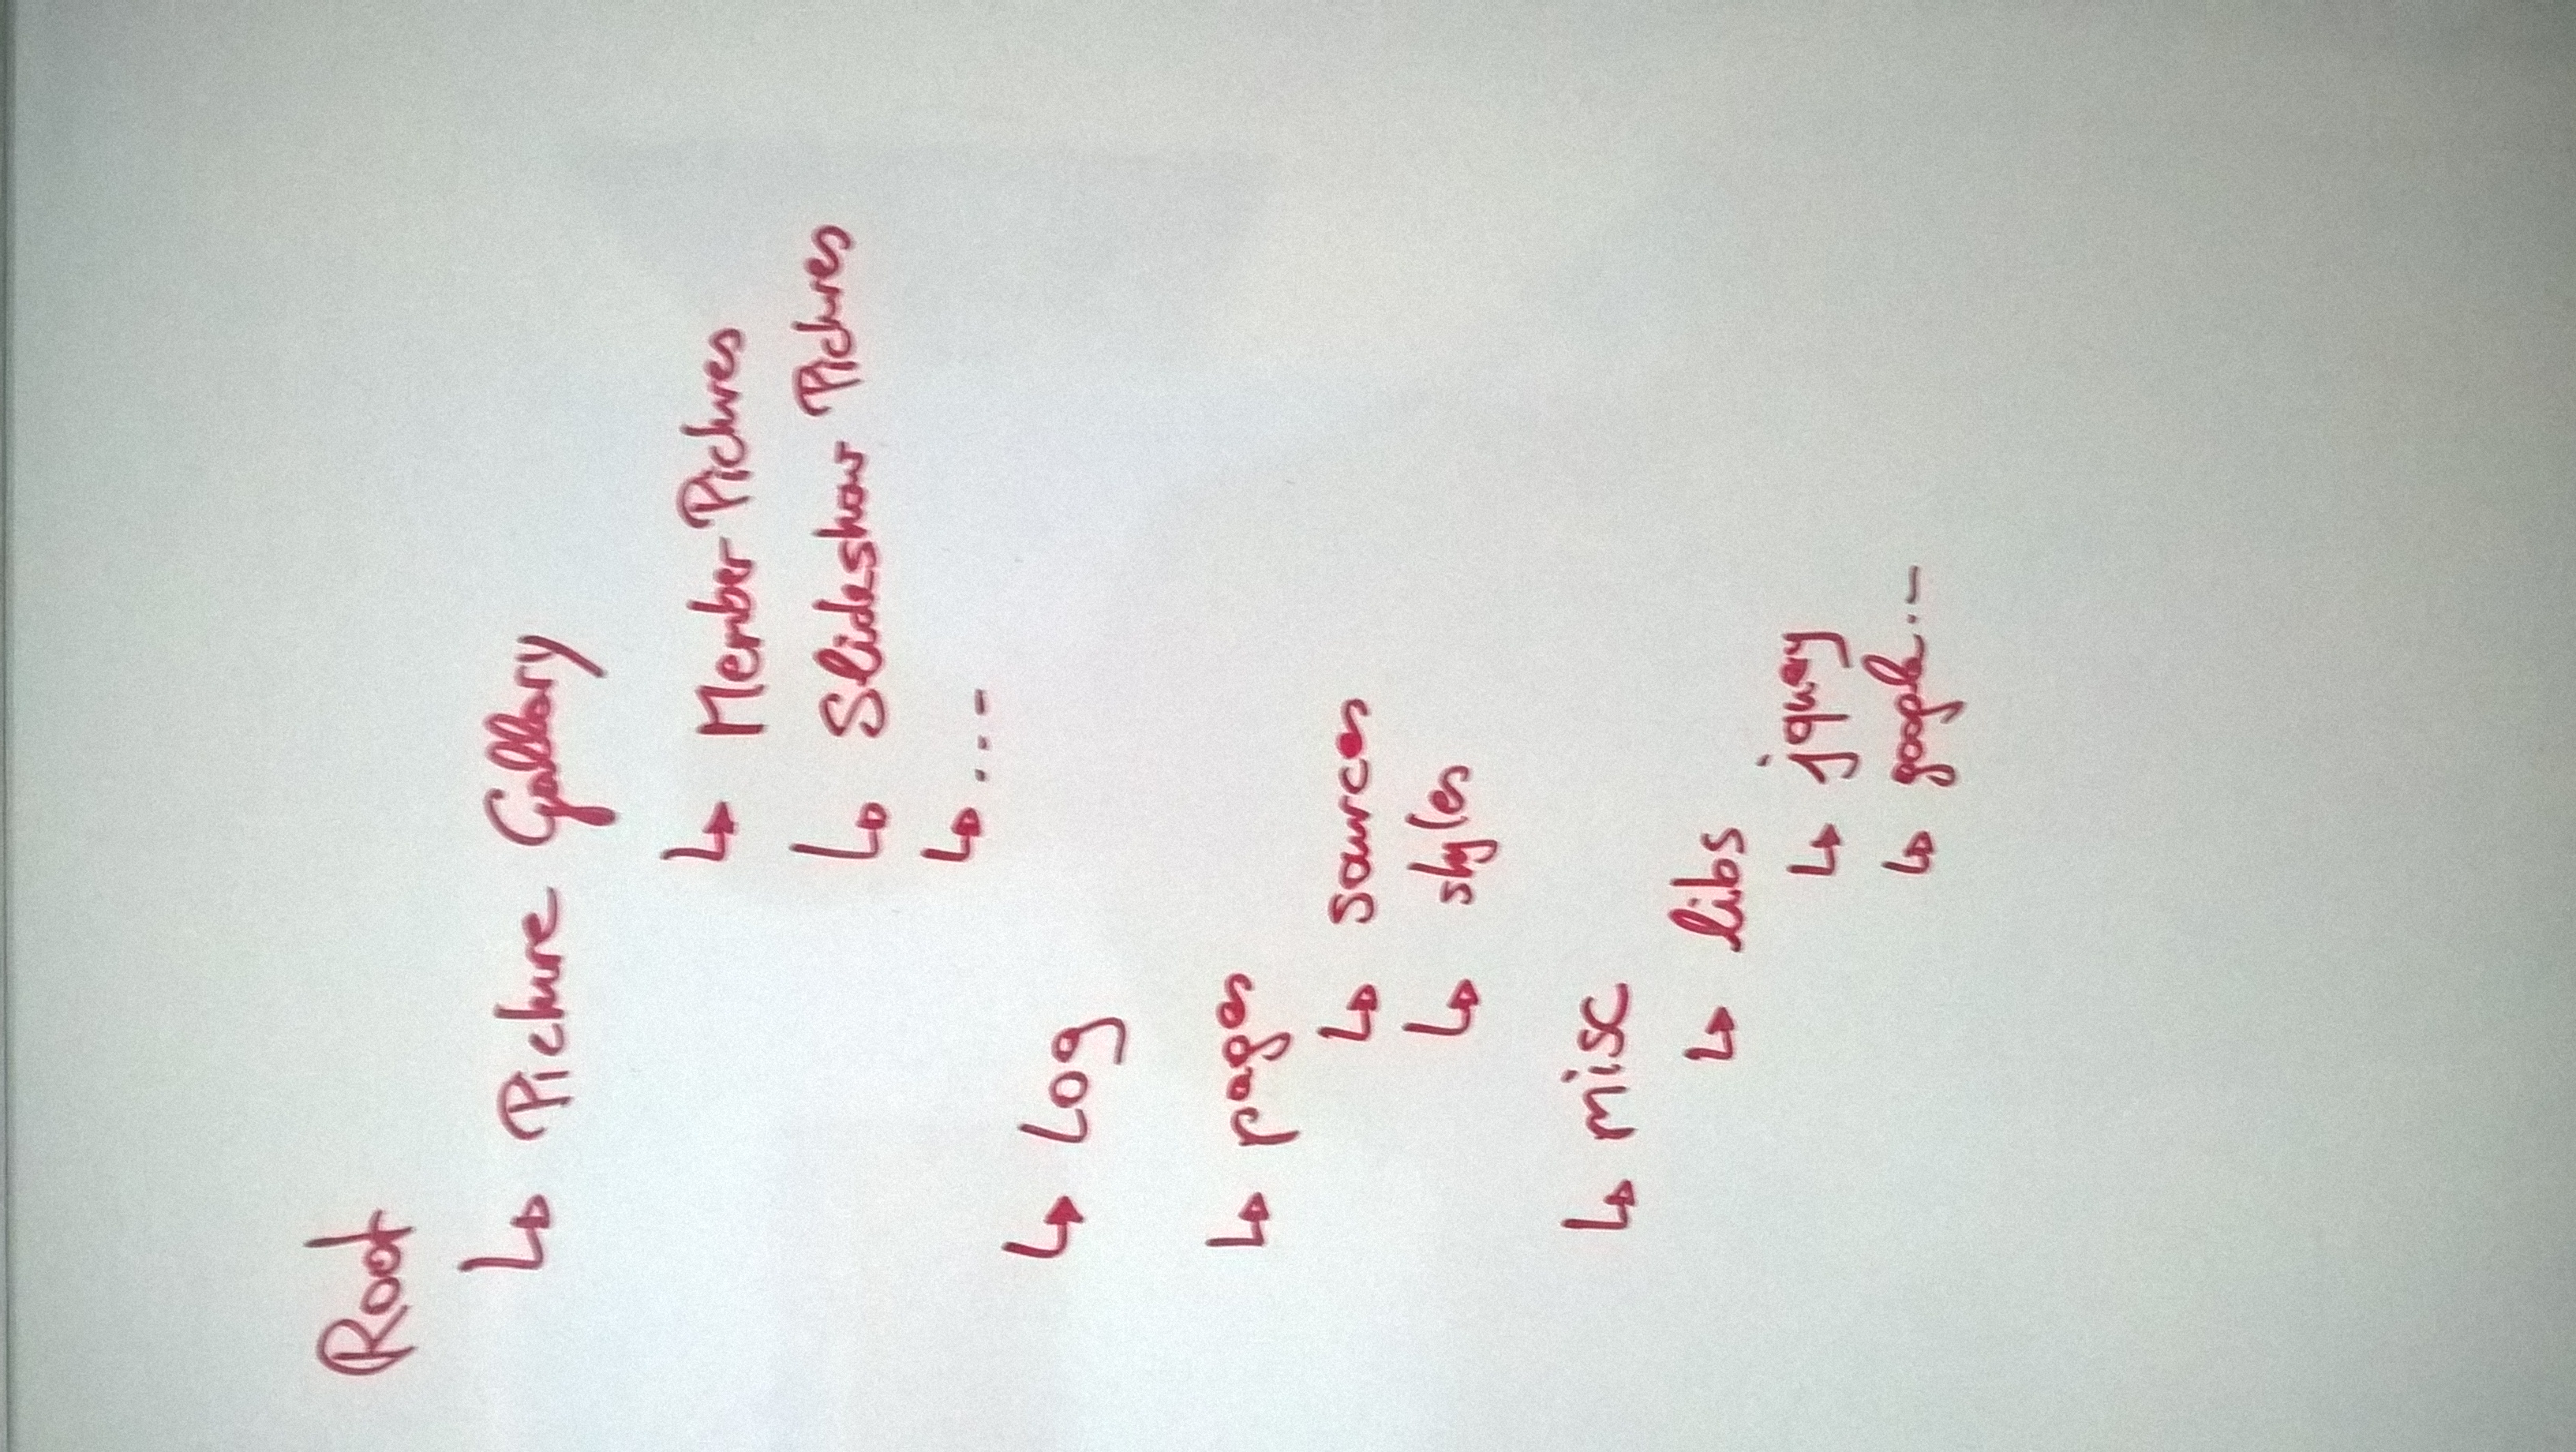 Root
↳ Picture Gallery
↳ Member Pictures
↳ Slideshow Pictures
↳ ...
↳ Log
↳ pages
↳ sources
↳ styles
↳ misc
↳ libs
↳ jquery
↳ google...